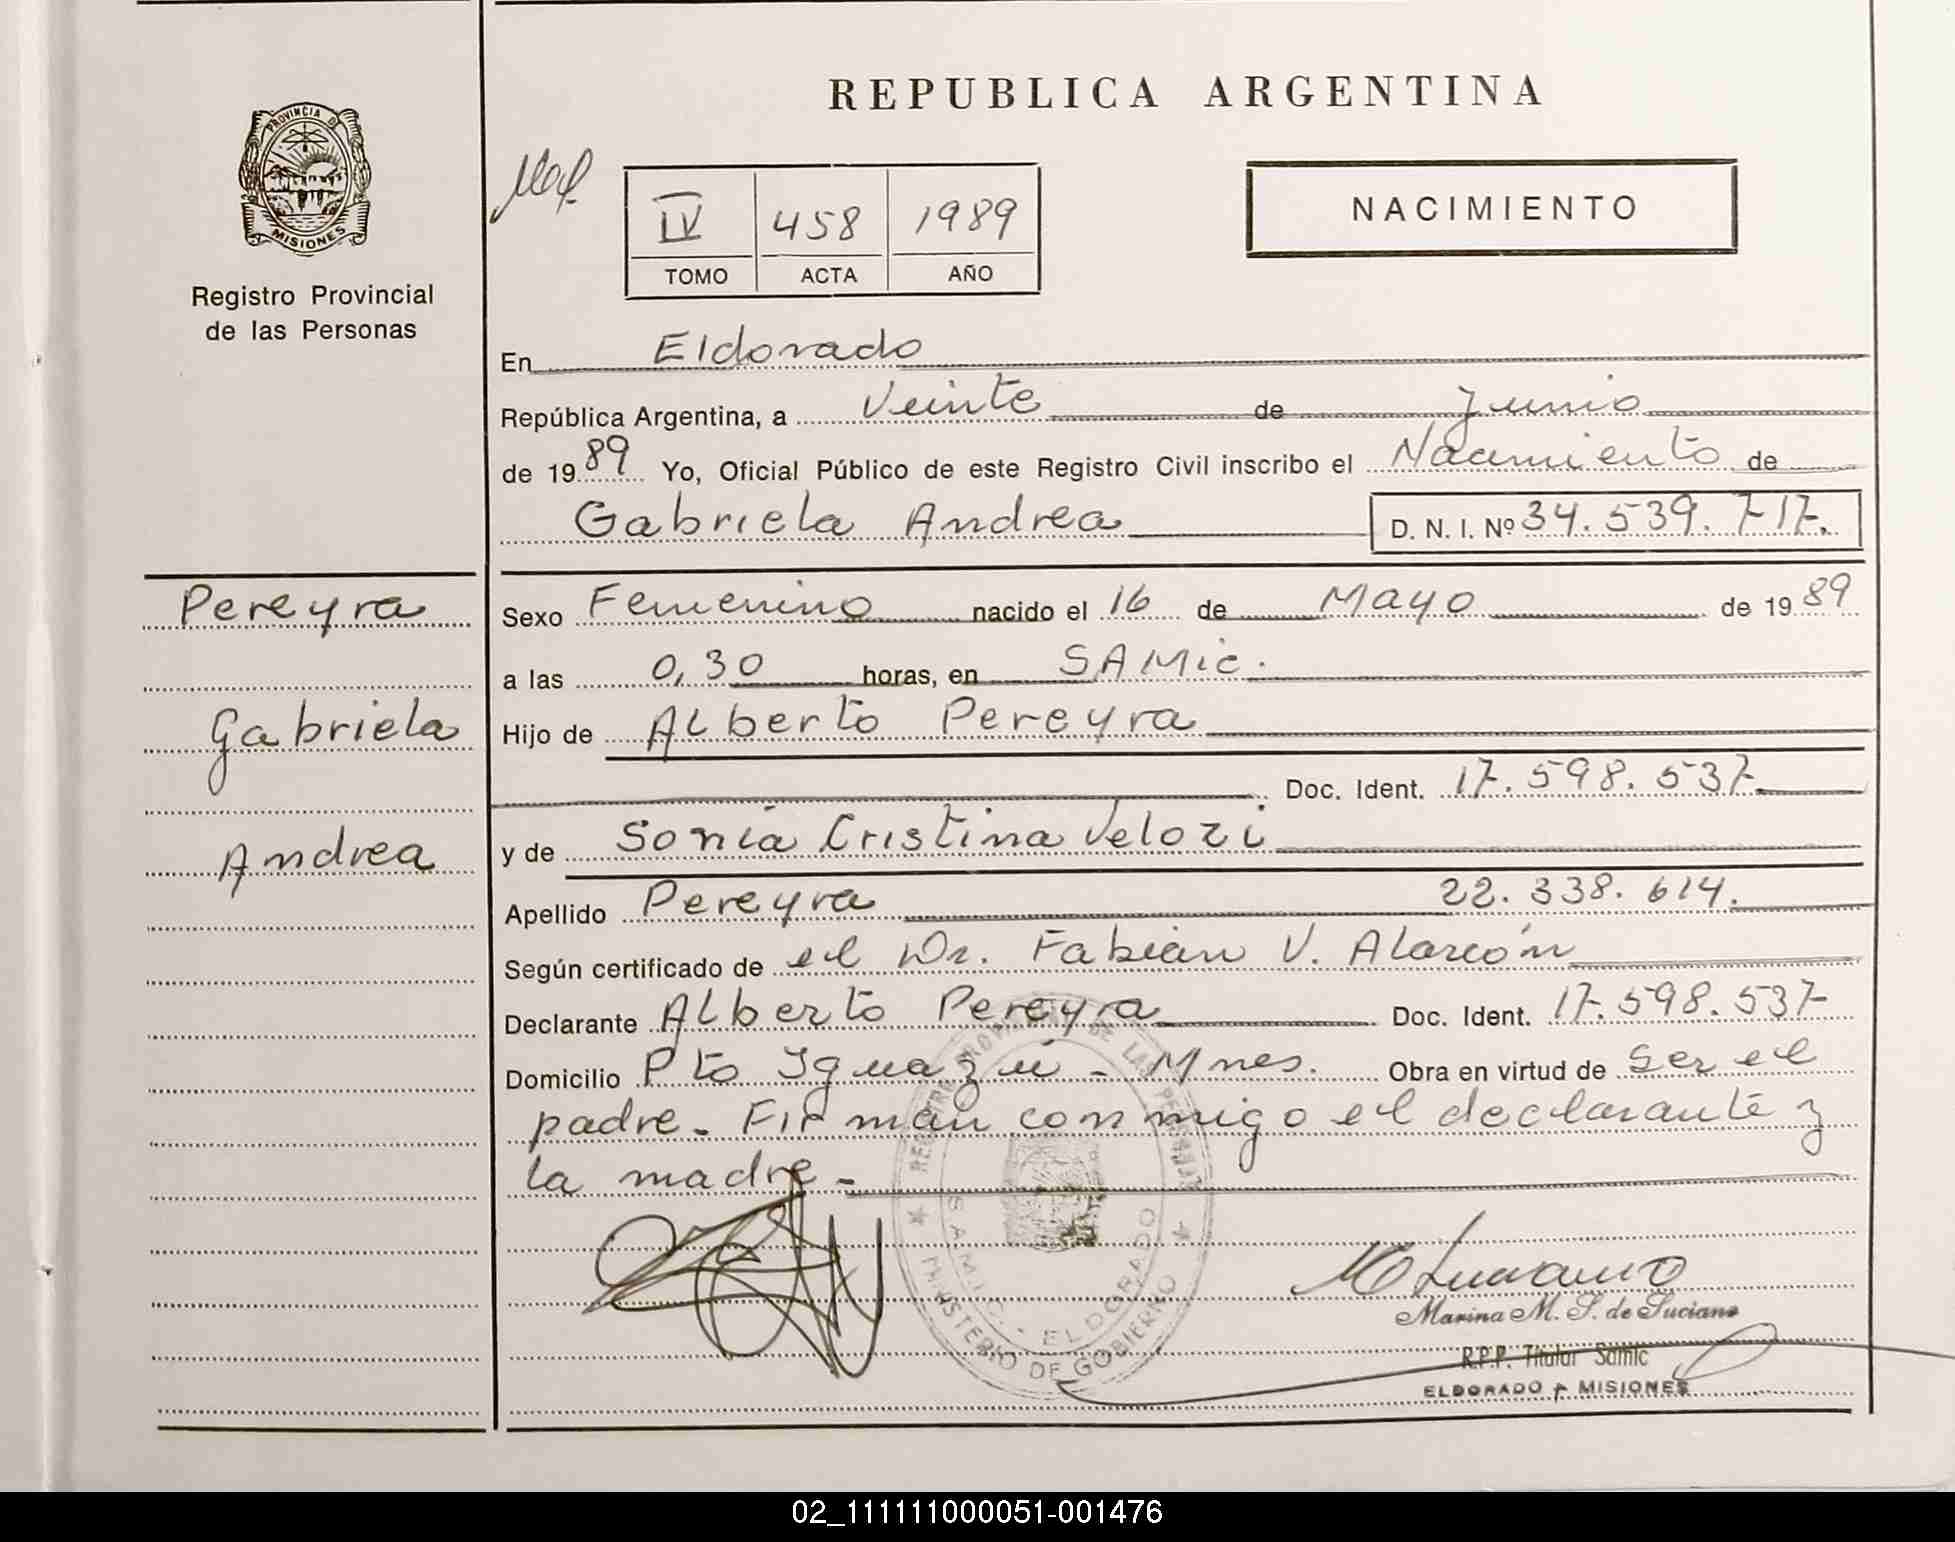 REPUBLICA ARGENTINA
PROVINCIA D
MISIONES
Registro Provincial
de las Personas
IV 458 1989
TOMO ACTA AÑO
NACIMIENTO
En Eldorado
República Argentina, a Veinte de Junio
de 1989 Yo, Oficial Público de este Registro Civil inscribo el Nacimiento de
Gabriela Andrea D. N. I. Nº 34.539.717.
Pereyra
Gabriela
Andrea
Sexo Femenino nacido el 16 de Mayo de 1989
a las 0,30 horas, en SAMic.
Hijo de Alberto Pereyra
Doc. Ident. 17.598.537
y de Sonia Cristina Velozi
Apellido Pereyra 22.338.614.
Según certificado de el Dr. Fabián V. Alarcón
Declarante Alberto Pereyra Doc. Ident. 17.598.537
Domicilio Pto Iguazú - Mnes. Obra en virtud de Ser el
padre. Firman conmigo el declarante y
la madre.-
REGISTRO PROVINCIAL DE LAS PERSONAS
S.A.M.I.C. - ELDORADO
MINISTERIO DE GOBIERNO
Marina M. S. de Luciano
R.P.P. Titular Samic
ELDORADO - MISIONES
02_111111000051-001476